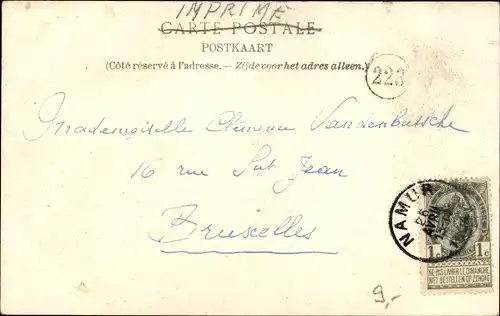 IMPRIMÉ
CARTE POSTALE
POSTKAART
(Côté réservé à l'adresse. — Zijde voor het adres alleen.)
223
Mademoiselle Clémence Vandenbussche
16 rue St Jean
Bruxelles
NAMUR
AVRIL
1c 1c
NE PAS LIVRER LE DIMANCHE
NIET BESTELLEN OP ZONDAG
9,-